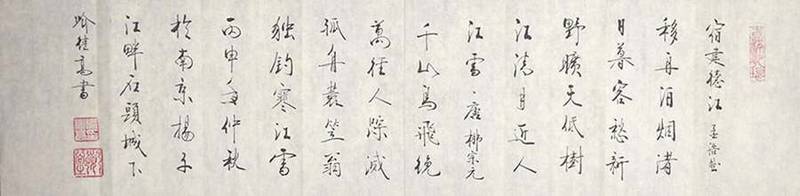 宿建德江 孟浩然
移舟泊烟渚
日暮客愁新
野旷天低樹
江清月近人
江雪·唐柳宗元
千山鳥飛绝
萬径人踪滅
孤舟蓑笠翁
独钓寒江雪
丙申年仲秋
於南京楊子
江畔石頭城下